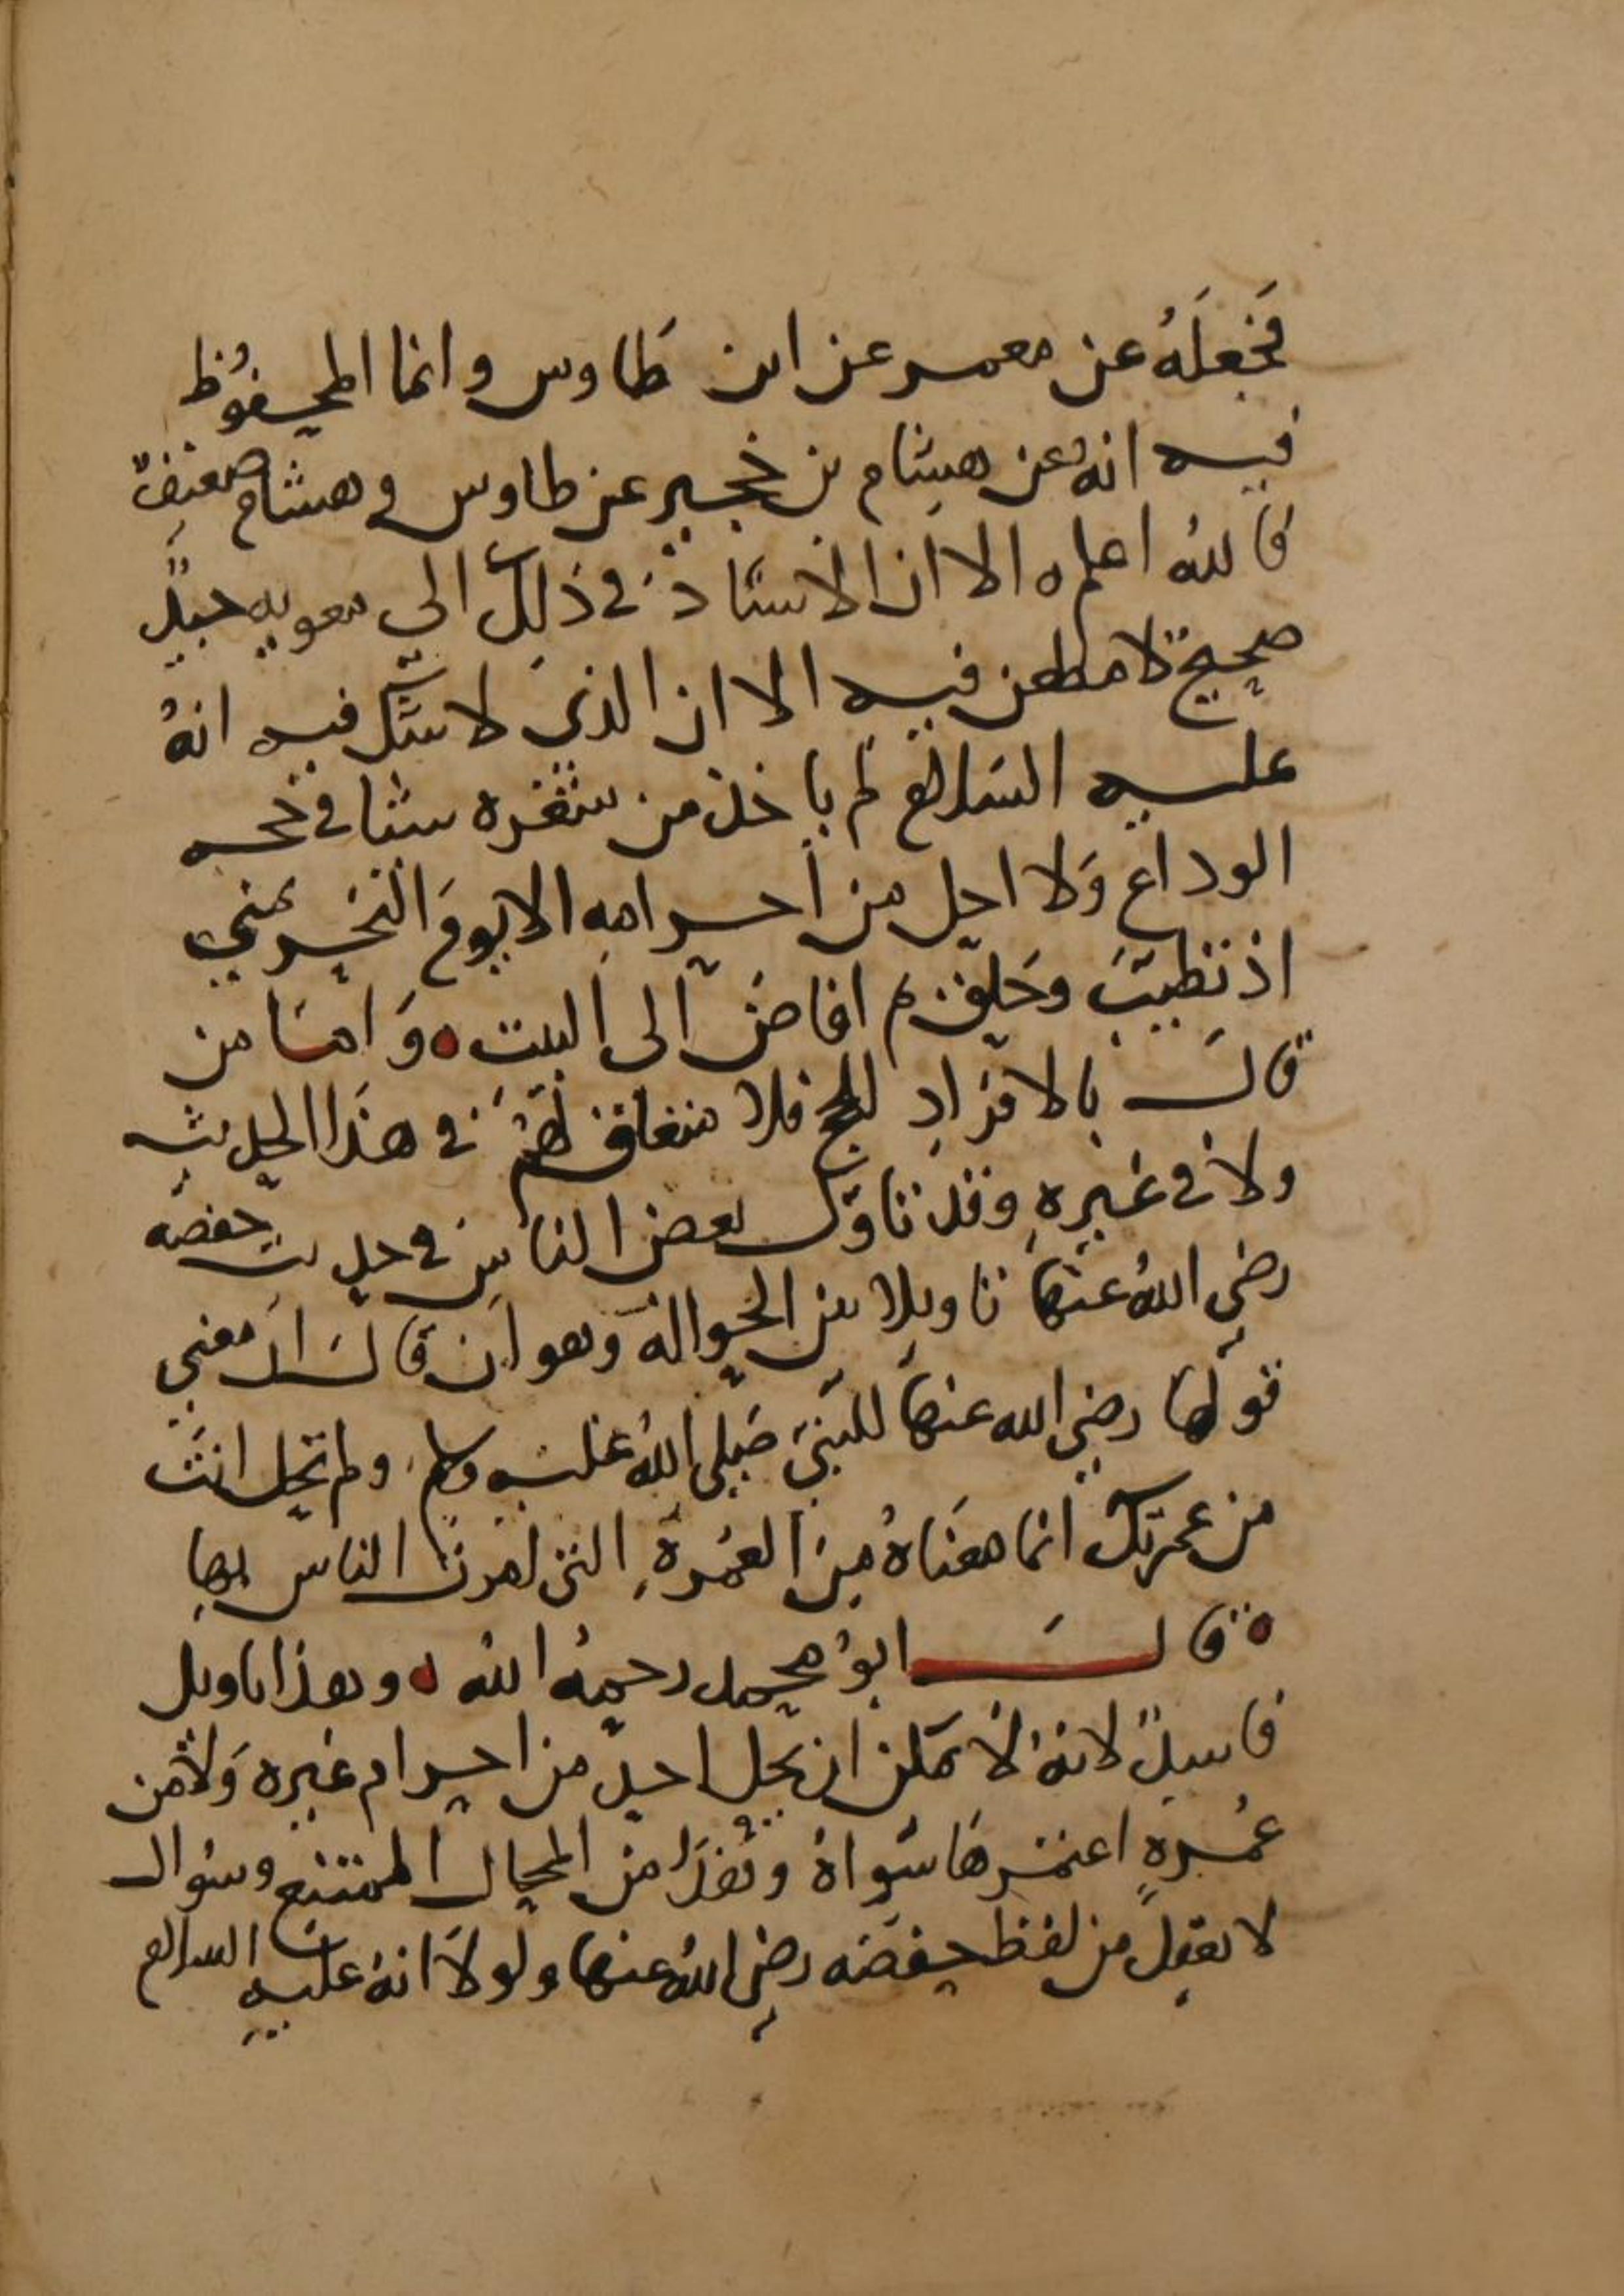 فجَعَلَهُ عن معمر عن ابن طَاوس وانما المحفوُظ
فيه انهُ عن هشام بن حُجير عن طاوس وهشام ضعيفٌ
فاللهُ اعلم ه الا ان الاسنَادَ في ذَلِكَ الي معويه جيدٌ
صحيح لا مطعن فيه الا ان الذي لا شك فيه انهُ
عليه السَلام لم ياخذ من شعره شيا في حجه
الوداع وَلا احل من احرامِهِ الا يومَ النحر بمني
اذ تطيبَ وحَلق ثم افاضَ الى البيت ه وَامَا من
قالَ بالافرَادِ للحج فلا متعلق لهُمْ في هذَا الحديث
ولا في غيرِهِ وقد تاوَل بعض الناس في حديث حفصه
رضي اللهُ عنهَا تاويلا من الحوالة وهو ان قال ان معني
قولها رضي الله عنهَا للنَبيَ صَلى اللهُ عَليه وسلم ولم تحل انتَ
من عمرتك انما معنَاهُ مِنَ العُمرةِ التي امرتَ الناس بهَا
ه قالَ ابوُ محمد رحمهُ اللهُ ه وهذا تاويل
فاسدٌ لانهُ لا يمكن ان يحل احد من احرام غيره وَلا من
عُمرةٍ اعتمرهَا سَواهُ وهَذَا من المحال الممتنع وسُوال
لا يعقِل من لفظ حفصَه رضي اللهُ عنها ولولاَ انهُ عليهِ السلام